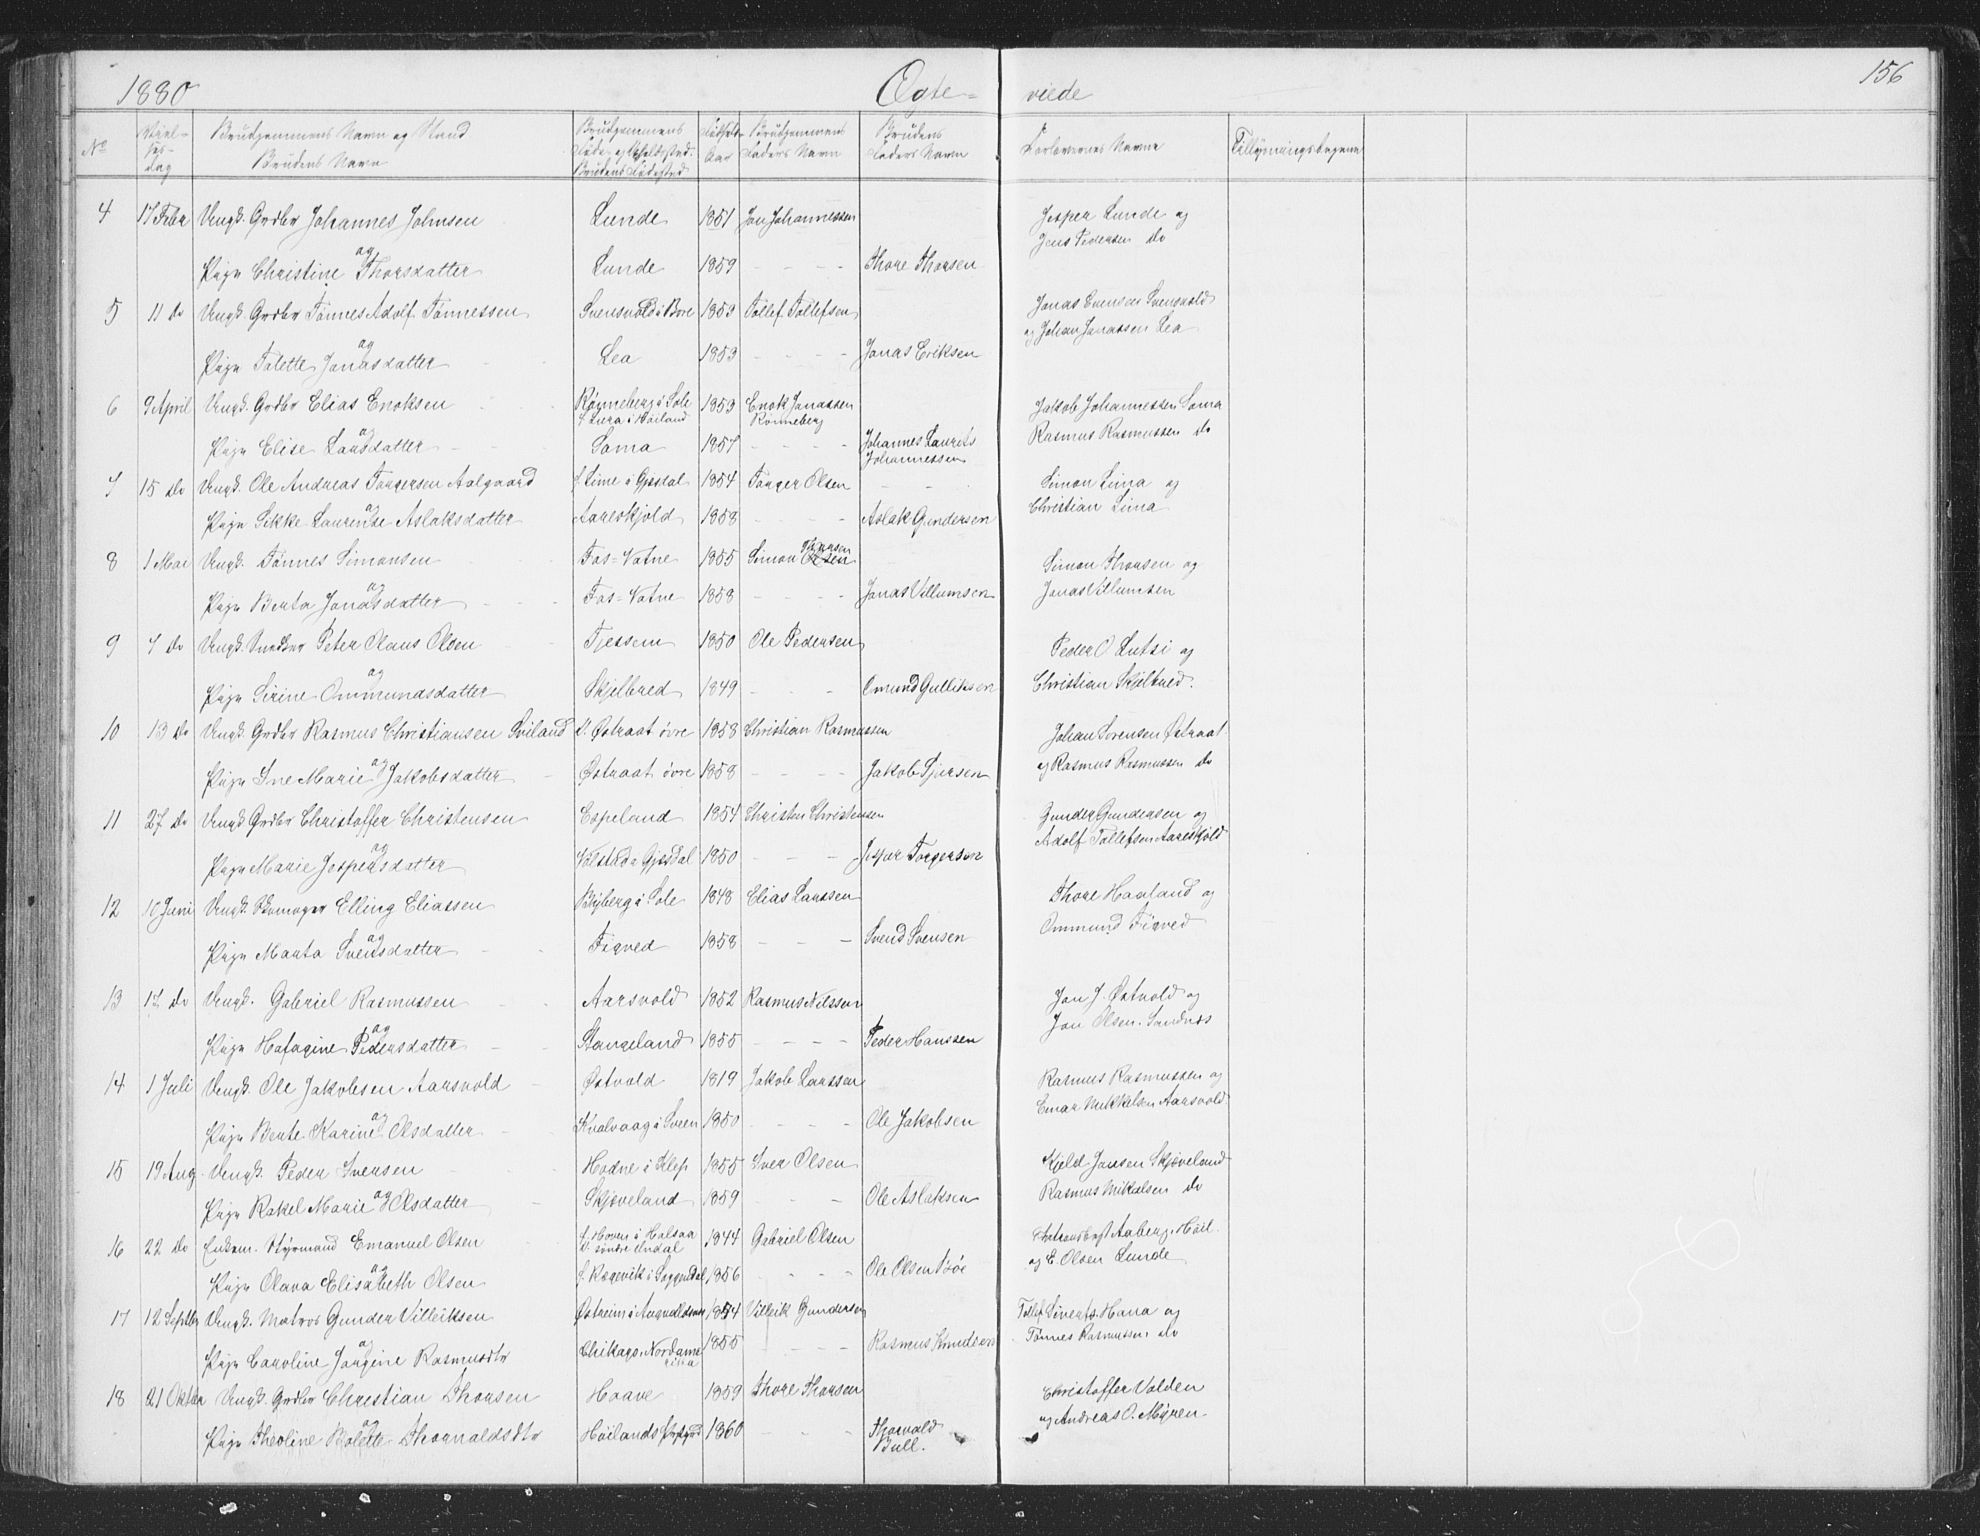 1880 Ægte- viede 156
No Viel- ses- dag Brudgommens Navn og Stand Brudens Navn Brudgommens Føde- og Opholdssted. Brudens Fødested Fødsels- Aar Brudgommens Faders Navn Brudens Faders Navn Forlovernes Navne Tillysningsdagene
4 17 Febr Ungk. Grdbr Johannes Johnsen Lunde 1851 Jon Johannessen Jesper Lunde og
Jens Pedersen do
og
Pige Christine Thorsdatter Lunde 1859 - - - Thore Thorsen
5 11 do Ungk. Grdbr Tønnes Adolf Tønnessen Svensvold i Bore 1853 Tollef Tollefsen Jonas Svensen Svensvold
og Johan Jonassen Lea
og
Pige Talette Jonasdatter Lea 1853 - - - Jonas Eriksen
6 9 April Ungk. Grdbr Elias Enoksen Rønneberg i Sole 1853 Enok Jonassen Jakob Johannessen Soma
f. Lura i Høiland Rønneberg
og Rasmus Rasmussen do
Pige Elise Larsdatter Soma 1857 - - - Johannes Laurits
Johannessen
7 15 do Ungk. Ole Andreas Torgersen Aalgaard f. Lime i Gjesdal 1854 Torger Olsen - - Simon Lima og
og Christian Lima
Pige Sikke Laurense Aslaksdatter Aareskjold 1858 - - - Aslak Gundersen
8 1 Mai Ungk. Tønnes Simonsen Fos-Vatne 1855 Simon Thorsen Simon Thorsen og
og
Pige Berta Jonasdatter Fos-Vatne 1858 - - - Jonas Villumsen Jonas Villumsen
9 7 do Ungk. Peter Olaus Olsen Tjessem 1850 Ole Pedersen Peder O Lutsi og
og
Pige Sirine Ommundsdatter Skjelbred 1849 - - - Omund Gulliksen Christian Skjelbred.
10 13 do Ungk. Grdbr Rasmus Christiansen Sviland Østraat øvre 1858 Christian Rasmussen Johan Sørensen Østraat
og
Pige Ane Marie Jakobsdatter Østraat øvre 1858 - - - Jakob Sjursen og Rasmus Rasmussen do
11 27 do Ungk Grdbr Christoffer Christensen Espeland 1854 Christen Christensen Gunder Gundersen og
Adolf Tollefsen Aareskjold
og
Pige Marie Jespersdatter Gjesdal 1850 - - - Jesper Torgersen
12 10 Juni Ungk. Skomager Elling Eliassen Byberg i Sole 1848 Elias Larssen Thore Haaland og
Ommund Figved
og
Pige Marta Svensdatter Figved 1858 - - - Svend Svensen
13 17 do Ungk. Gabriel Rasmussen Aarsvold 1852 Rasmus Nilssen Jon J. Østvold og
Jon Olsen. Sandnes
og
Pige Pedersdatter Stangeland 1855 - - - Peder Hanssen
14 1 Juli Ungk. Ole Jakobsen Aarsvold Østvold 1819 Jakob Larssen Rasmus Rasmussen og
Einar Mikkelsen Aarsvold.
og
Pige Berte Karine Olsdatter Kvalvaag i 1850 - - - Ole Jakobsen
15 19 Aug Ungk. Peder Iversen Hodne i Klep 1855 Iver Olsen Kjeld Jansen Skjæveland
og
Pige Rakel Marie Olsdatter Skjæveland 1859 - - - Ole Aslaksen Rasmus Mikalsen do
16 22 do Enkem. Styrmand Emanuel Olsen f. Hoven i Halsaa 1844 Gabriel Olsen Aaberg. Høil.
søndre Undal og E Olsen Lunde
og
Pige Olava Elisabeth Olsen f. Rægevik i Soggendal 1856 - - - Ole Olsen
17 12 Septbr Ungk. Matros Gunder Villeiksen Østreim i 1854 Villeik Gundersen Tollef Siverts. Hana og
Tønnes Rasmussen do
og
Pige Caroline Jorgine Rasmusdtr Chikago. Nordame 1855 - - - Rasmus Knudsen
rika
18 21 Oktbr Ungk. Grdbr Christian Thorsen Hoave 1859 Thore Thorsen Christoffer Volden
og Andreas O. Myren.
og
Pige Theoline Bolette Thorvaldsdtr Høilands Prstgrd 1860 - - - Thorvald
Bull.